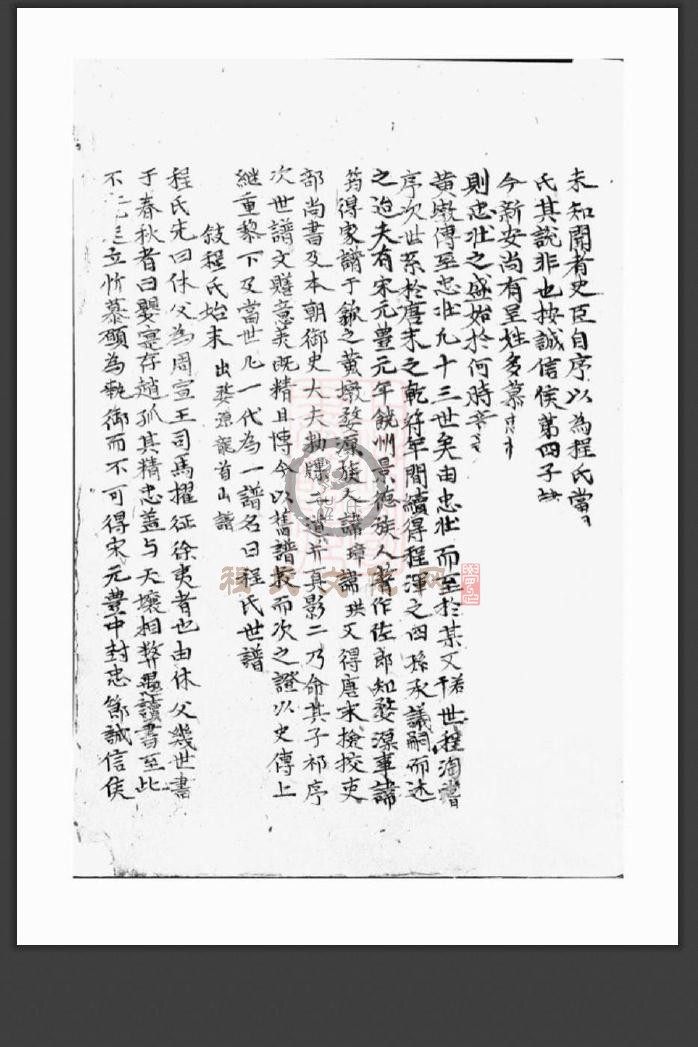 未知聞者史臣自序以為程氏當
氏其說非也按誠信侯第四子
今新安尚有呈姓多慕
則忠壯之盛始於何時
黃墩傳至忠壯凡十三世矣由忠壯而至於某又若世程淘嘗
序次世系於唐末之乾符年間續得程渾之四孫承議嗣而述
之迨夫有宋元豐元年饒州景德族人著作佐郎知婺源事諱
筠得家譜于歙之黃墩婺源族人諱璋諱珙又得唐末檢校吏
部尚書及本朝御史大夫勑牒二道并真影二乃命其子祁序
次世譜文贍意美既精且博今以舊譜校而次之證以史傳上
継重黎下及當世凡一代為一譜名曰程氏世譜
敍程氏始末 出婺源龍首山譜
程氏先曰休父為周宣王司馬擢征徐夷者也由休父幾世書
于春秋者曰嬰寔存趙孤其精忠蓋与天壤相弊愚讀書至此
不立忻慕願為執御而不可得宋元豐中封忠節誠信侯
程氏文化网